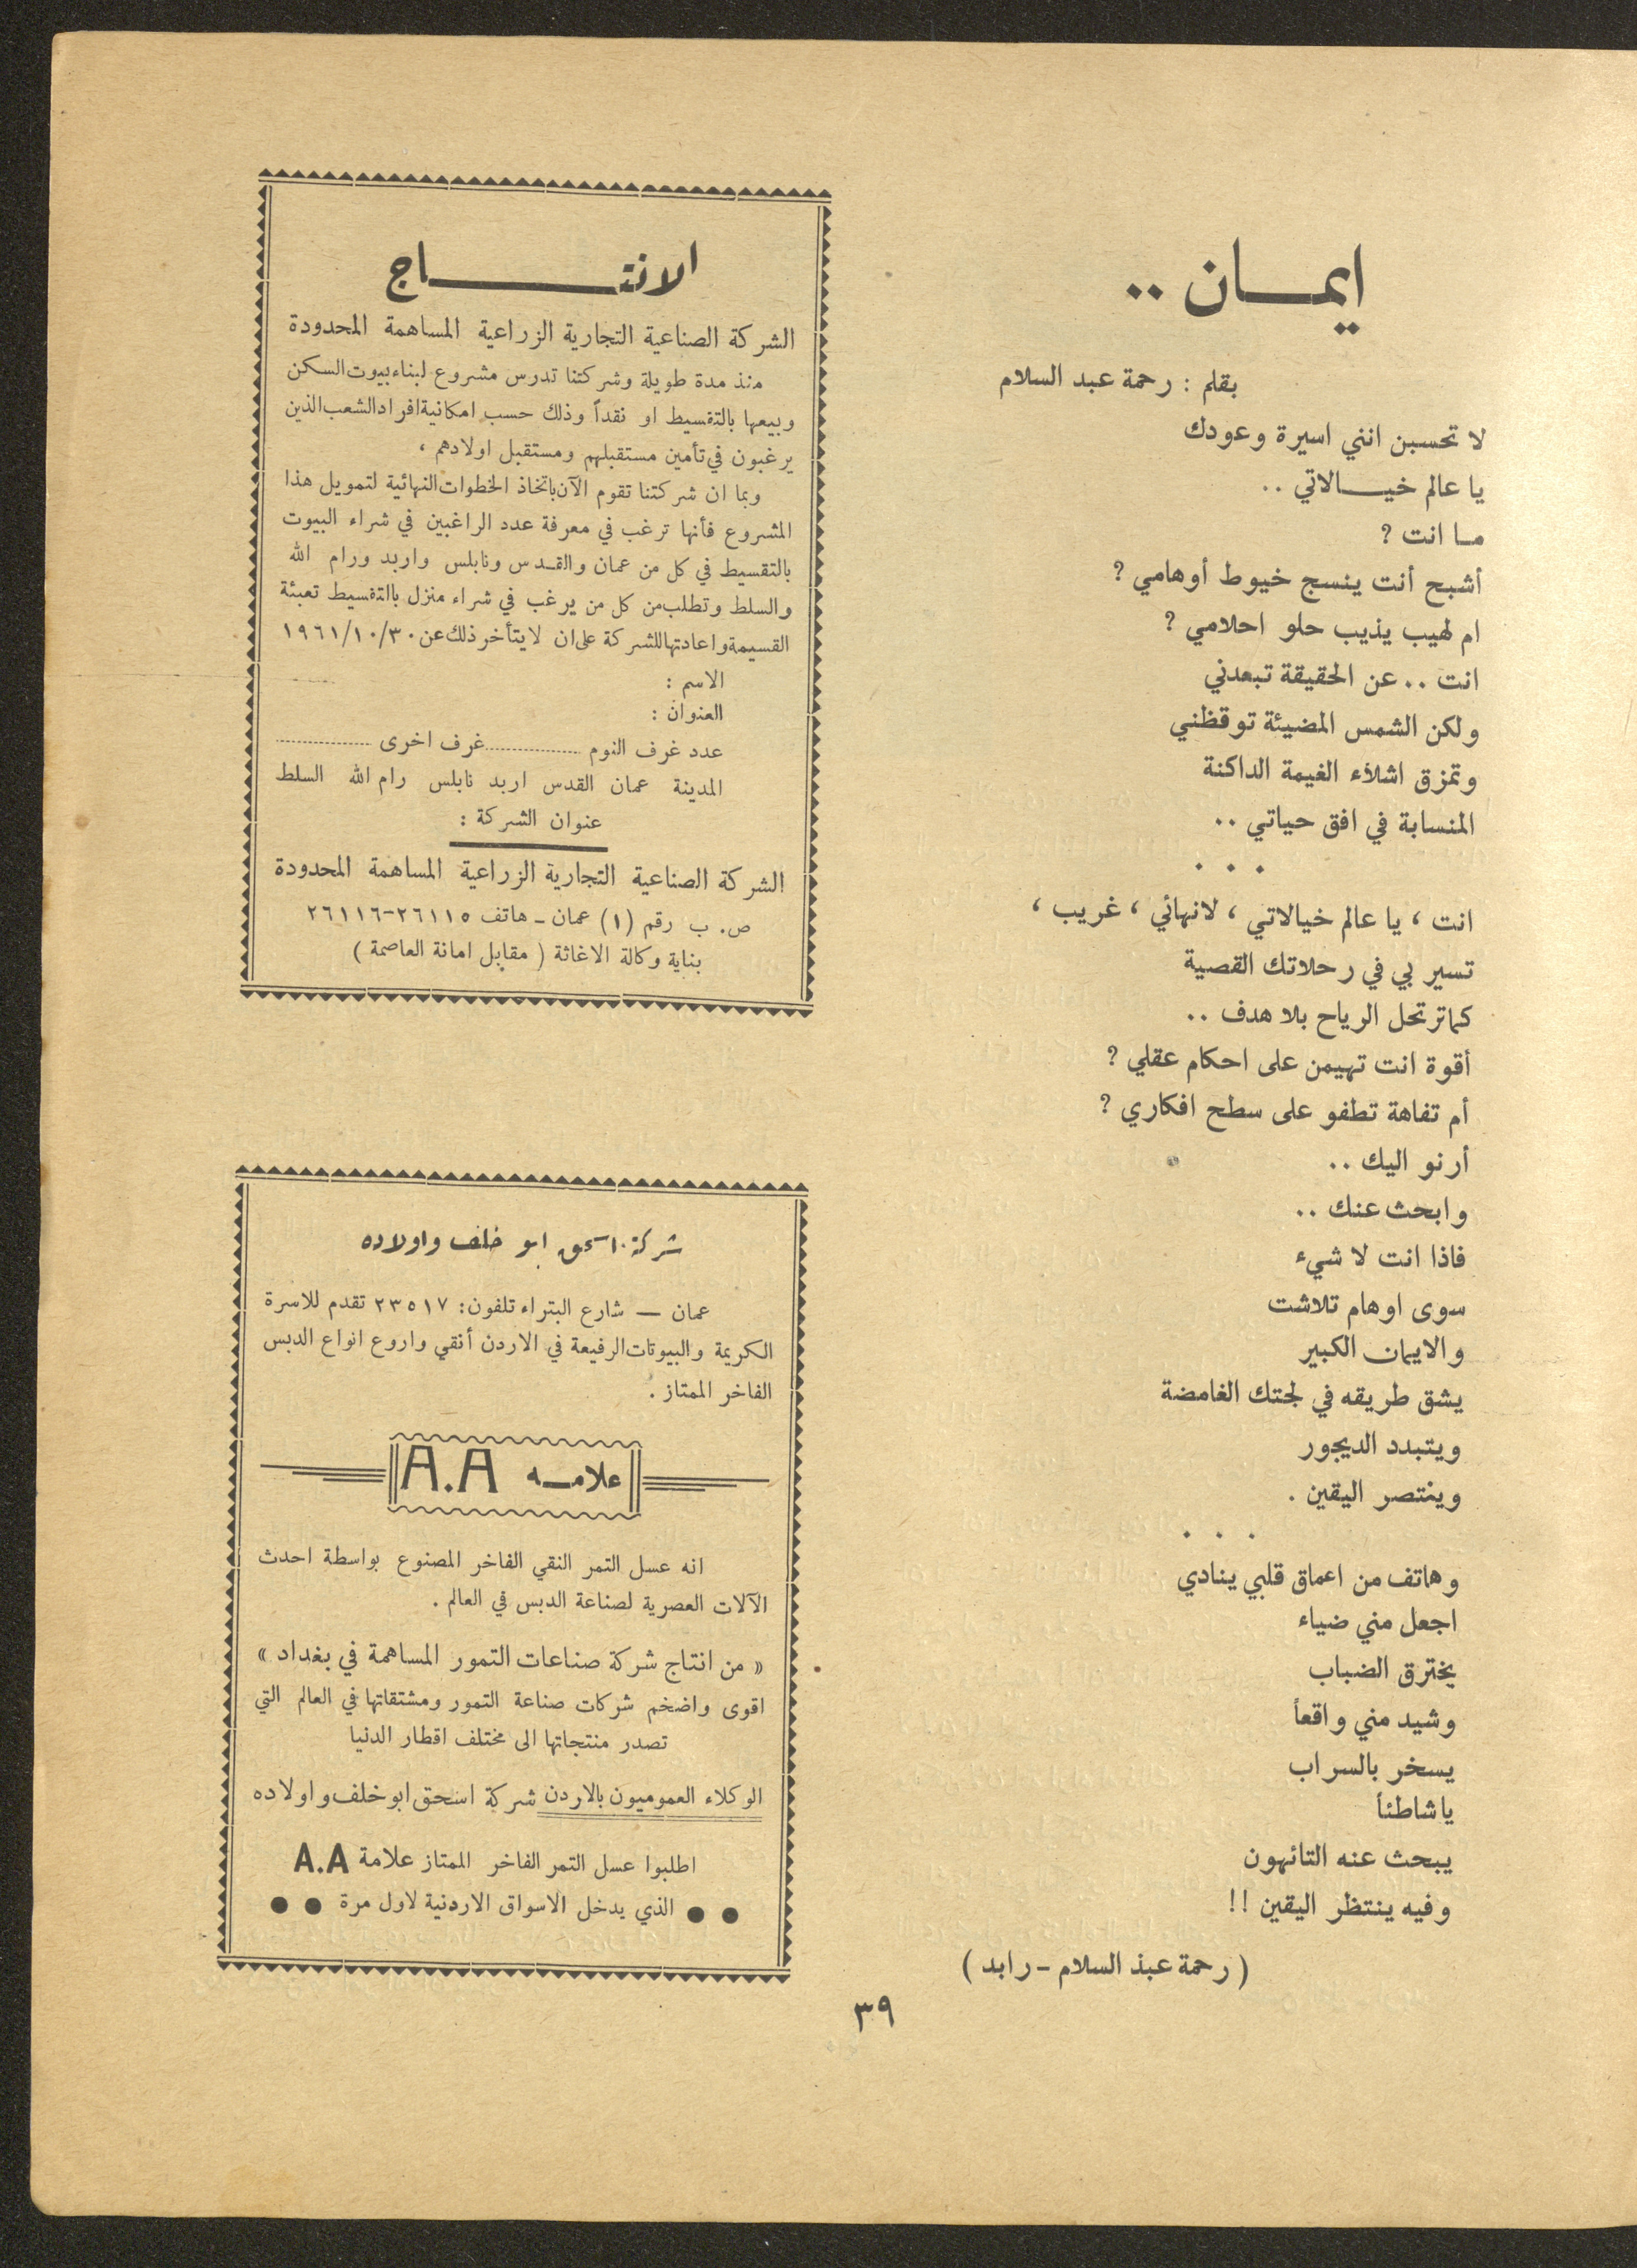 ايمـــان ..
بقلم : رحمة عبد السلام
لا تحسبن انني اسيرة وعودك
يا عالم خيـــالاتي ..
مـا انت ?
أشبح أنت ينسج خيوط أوهامي ?
ام لهيب يذيب حلو احلامي ?
انت .. عن الحقيقة تبعدني
ولكن الشمس المضيئة توقظني
وتمزق اشلاء الغيمة الداكنة
المنسابة في افق حياتي ..
. . .
انت ، يا عالم خيالاتي ، لانهائي ، غريب ،
تسير بي في رحلاتك القصية
كماترتحل الرياح بلا هدف ..
أقوة انت تهيمن على احكام عقلي ?
أم تفاهة تطفو على سطح افكاري ?
أرنو اليك ..
وابحث عنك ..
فاذا انت لا شيء
سوى اوهام تلاشت
والايمان الكبير
يشق طريقه في لجتك الغامضة
ويتبدد الديجور
وينتصر اليقين .
. . .
وهاتف من اعماق قلبي ينادي
اجعل مني ضياء
يخترق الضباب
وشيد مني واقعاً
يسخر بالسراب
ياشاطئاً
يبحث عنه التائهون
وفيه ينتظر اليقين !!
( رحمة عبذ السلام - رابد )
الانتـــــــاج
الشركة الصناعية التجارية الزراعية المساهمة المحدودة
منذ مدة طويلة وشركتنا تدرس مشروع لبناء بيوت السكن
وبيعها بالتقسيط او نقداً وذلك حسب امكانية افراد الشعب الذين
يرغبون في تأمين مستقبلهم ومستقبل اولادهم ،
وبما ان شركتنا تقوم الآن باتخاذ الخطوات النهائية لتمويل هذا
المشروع فأنها ترغب في معرفة عدد الراغبين في شراء البيوت
بالتقسيط في كل من عمان والقـدس ونابلس واربد ورام الله
والسلط وتطلب من كل من يرغب في شراء منزل بالتقسيط تعبئة
القسيمة واعادتها للشركة على ان لا يتأخر ذلك عن ١٩٦١/١٠/٣٠
الاسم :
العنوان :
عدد غرف النوم ................ غرف اخرى ................
المدينة عمان القدس اربد نابلس رام الله السلط
عنوان الشركة :
الشركة الصناعية التجارية الزراعية المساهمة المحدودة
ص. ب رقم (١) عمان - هاتف ٢٦١١٥-٢٦١١٦
بناية وكالة الاغاثة ( مقابل امانة العاصمة )
شركة اسحق ابو خلف واولاده
عمان — شارع البتراء تلفون: ٢٣٥١٧ تقدم للاسرة
الكريمة والبيوتات الرفيعة في الاردن أنقي واروع انواع الدبس
الفاخر الممتاز .
علامـــه A.A
انه عسل التمر النقي الفاخر المصنوع بواسطة احدث
الآلات العصرية لصناعة الدبس في العالم .
« من انتاج شركة صناعات التمور المساهمة في بغداد »
اقوى واضخم شركات صناعة التمور ومشتقاتها في العالم التي
تصدر منتجاتها الى مختلف اقطار الدنيا
الوكلاء العموميون بالاردن شركة اسحق ابو خلف واولاده
اطلبوا عسل التمر الفاخر الممتاز علامة A.A
●● الذي يدخل الاسواق الاردنية لاول مرة ●●
٣٩